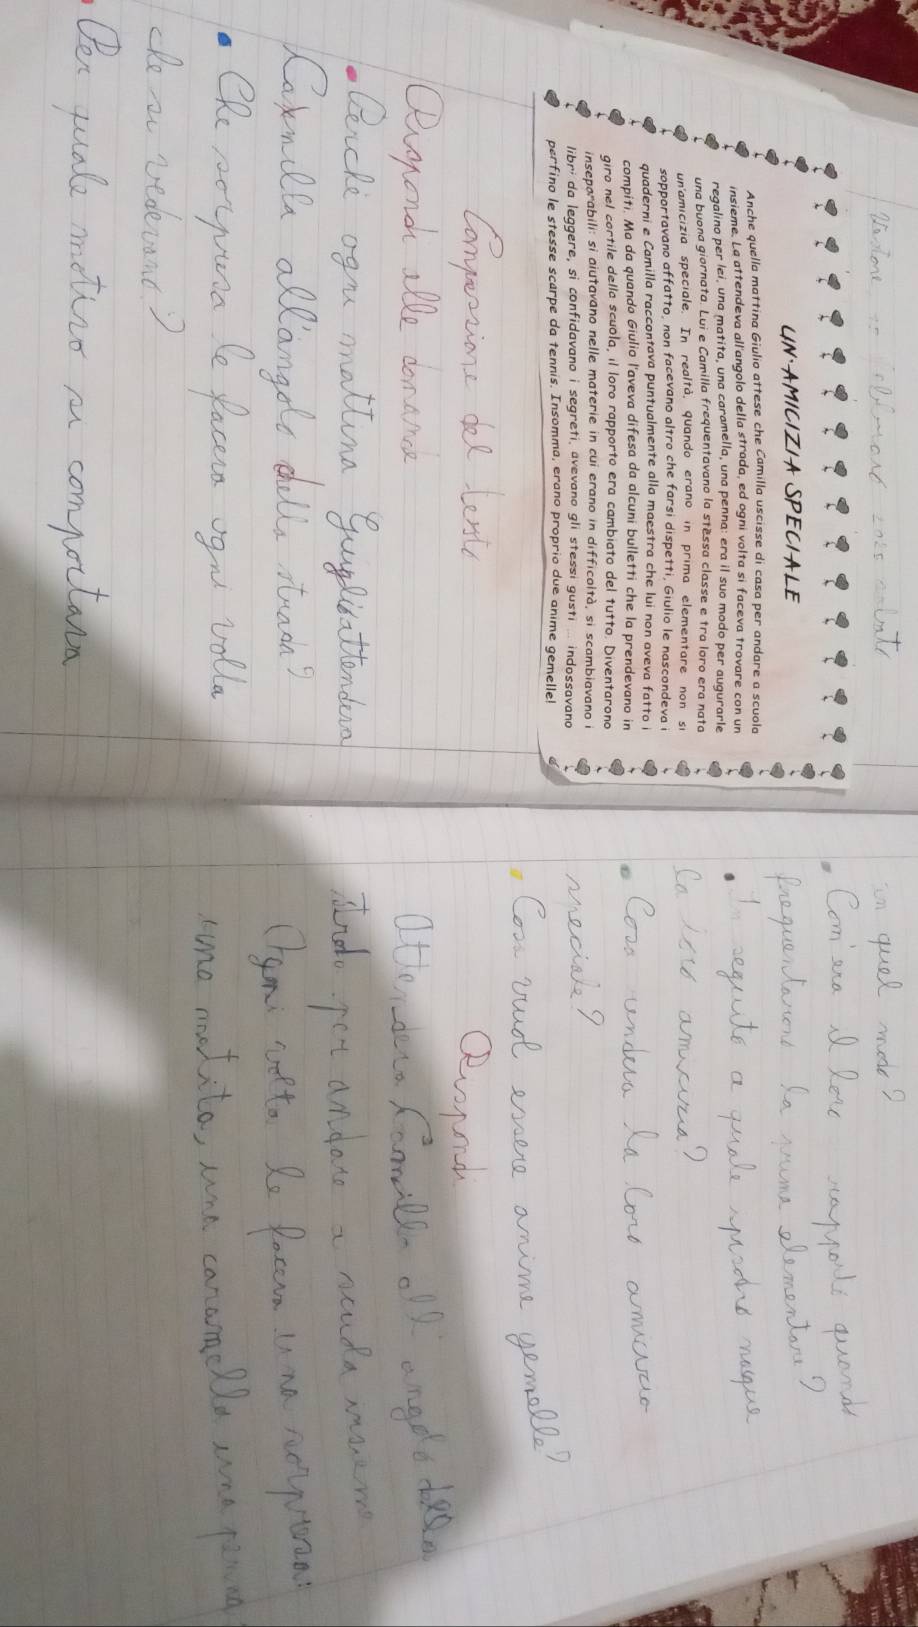 UN'AMICIZIA SPECIALE
Anche quella mattina Giulio attese che Camilla uscisse di casa per andare a scuola
insieme. La attendeva all'angolo della strada, ed ogni volta si faceva trovare con un
regalino per lei, una matita, una caramella, una penna: era il suo modo per augurarle
una buona giornata. Lui e Camilla frequentavano la stessa classe e tra loro era nata
un'amicizia speciale. In realtà, quando erano in prima elementare non si
sopportavano affatto, non facevano altro che farsi dispetti, Giulio le nascondeva i
quaderni e Camilla raccontava puntualmente alla maestra che lui non aveva fatto i
compiti. Ma da quando Giulio l'aveva difesa da alcuni bulletti che la prendevano in
giro nel cortile della scuola, il loro rapporto era cambiato del tutto. Diventarono
inseparabili: si aiutavano nelle materie in cui erano in difficoltà, si scambiavano i
libri da leggere, si confidavano i segreti, avevano gli stessi gusti ... indossavano
perfino le stesse scarpe da tennis. Insomma, erano proprio due anime gemelle!
Comprensione del testo
Rispondi alle domande
Perché ogni mattina attendeva
Camilla all'angolo della strada?
Che sorpresa le faceva ogni volta
che si vedevano?
Per quale motivo si comportava
in quel modo?
Com'era il loro rapporto quando
frequentavano la prima elementare?
In seguito a quale episodio nacque
la loro amicizia?
Cosa rendeva la loro amicizia
speciale?
Cosa vuol essere anime gemelle?
Rispondi
Attendeva Camilla all'angolo della
per andare a scuola insieme
Ogni volta le faceva una sorpresa:
una matita, una caramella una penna